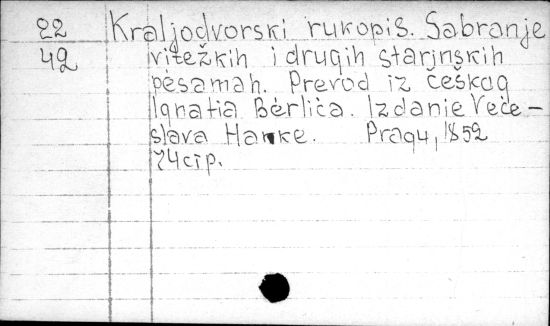 22 Kraljodvorski rukopis. Sabranje
42 vitežkih i drugih starinskih
pésamah. Prevod iz češkog
Ignatia Bérlića. Izdanie Veće-
slava Hanke. Pragu, 1852
74 cтр.